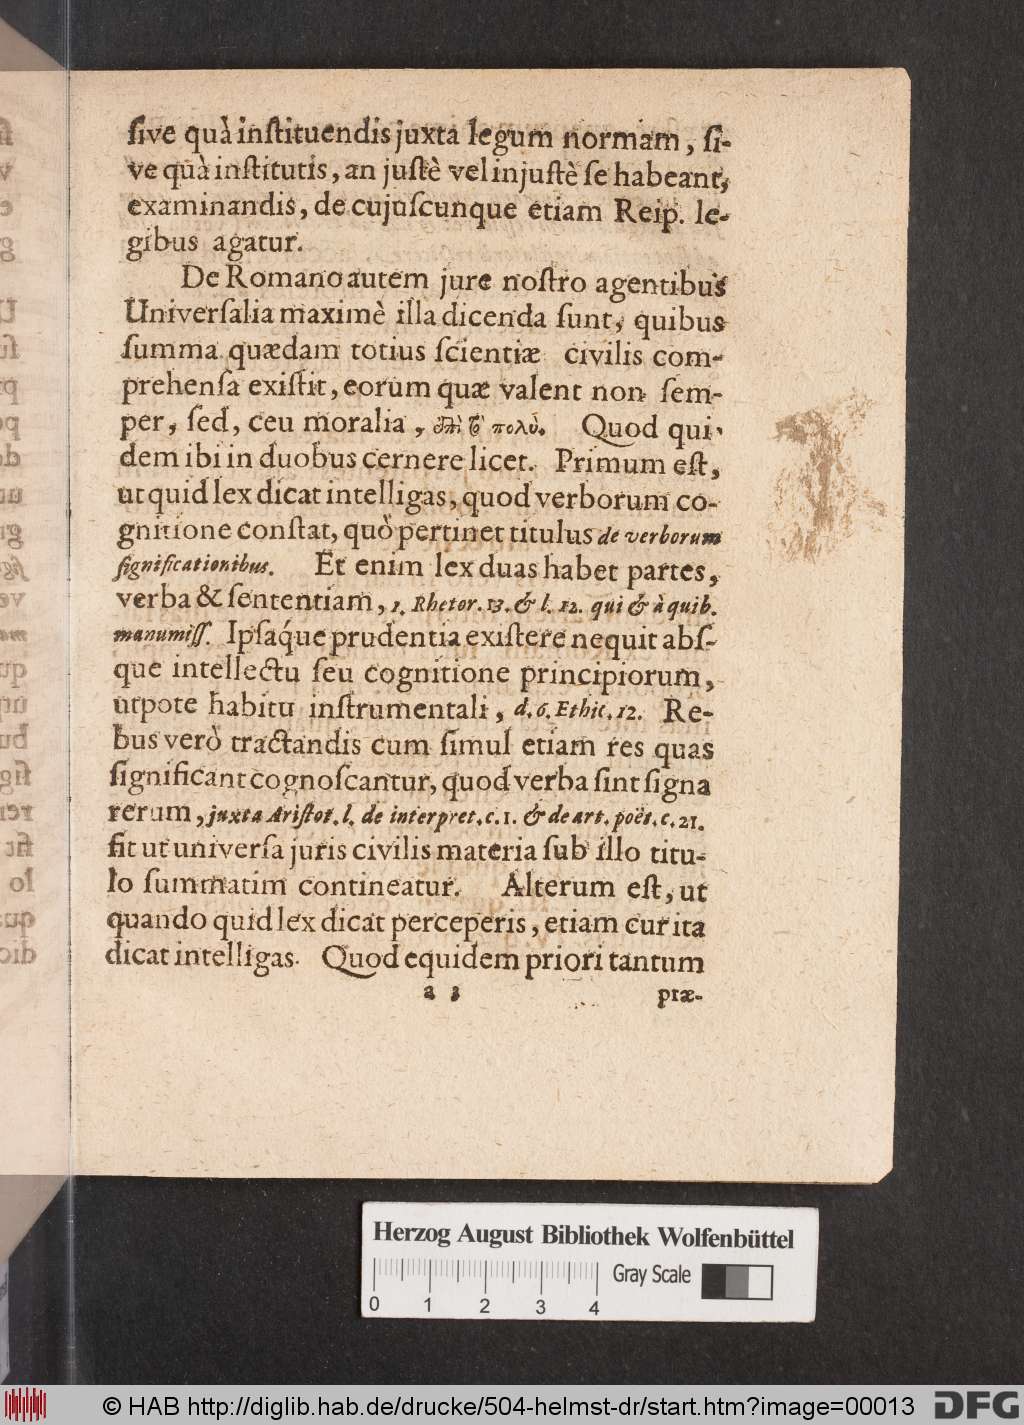 ſive quà inſtituendis juxta legum normam, ſi-
ve quà inſtitutis, an juſtè vel injuſtè ſe habeant,
examinandis, de cujuſcunque etiam Reip. le-
gibus agatur.
De Romano autem jure noſtro agentibus
Univerſalia maximè illa dicenda ſunt, quibus
ſumma quædam totius ſcientiæ civilis com-
prehenſa exiſtit, eorum quæ valent non ſem-
per, ſed, ceu moralia, ἐπὶ τὸ πολύ. Quod qui-
dem ibi in duobus cernere licet. Primum eſt,
ut quid lex dicat intelligas, quod verborum co-
gnitione conſtat, quò pertinet titulus de verborum
ſignificationibus. Et enim lex duas habet partes,
verba & ſententiam, 1. Rhetor. 13. & l. 12. qui & à quib.
manumiſſ. Ipſáque prudentia exiſtere nequit abſ-
que intellectu ſeu cognitione principiorum,
utpote habitu inſtrumentali, d. 6. Ethic. 12. Re-
bus verò tractandis cum ſimul etiam res quas
ſignificant cognoſcantur, quod verba ſint ſigna
rerum, juxta Ariſtot. l. de interpret. c. 1. & de art. poët. c. 21.
fit ut univerſa juris civilis materia ſub illo titu-
lo ſummatim contineatur. Alterum eſt, ut
quando quid lex dicat perceperis, etiam cur ita
dicat intelligas. Quod equidem priori tantum
a 3 præ-
Herzog August Bibliothek Wolfenbüttel
Gray Scale
0 1 2 3 4
© HAB http://diglib.hab.de/drucke/504-helmst-dr/start.htm?image=00013 DFG